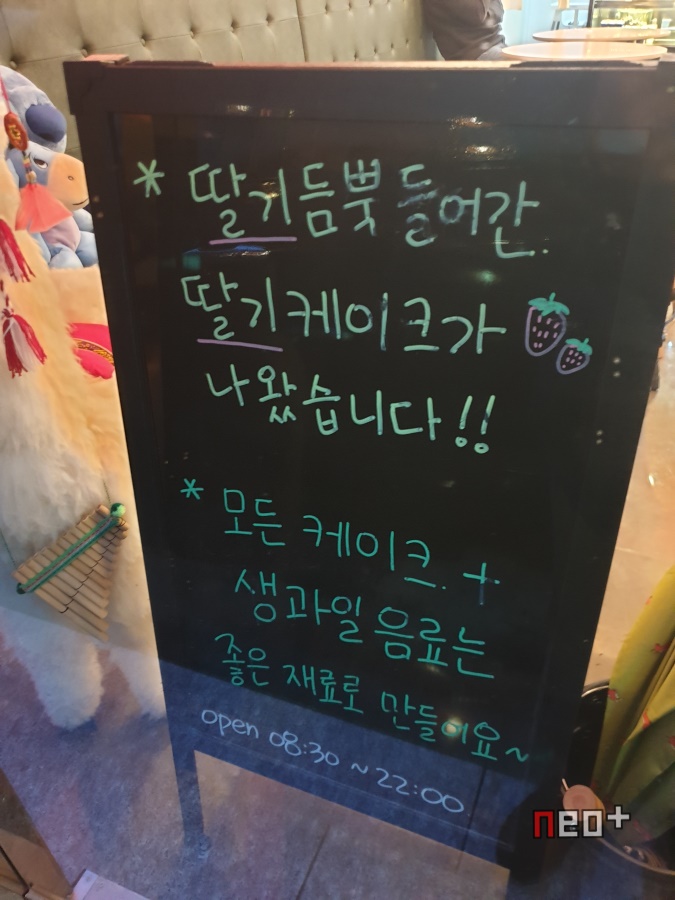 * 딸기듬뿍 들어간.
딸기케이크가
나왔습니다!!
* 모든 케이크. +
생과일 음료는
좋은 재료로 만들어요~
open 08:30 ~ 22:00
neo+